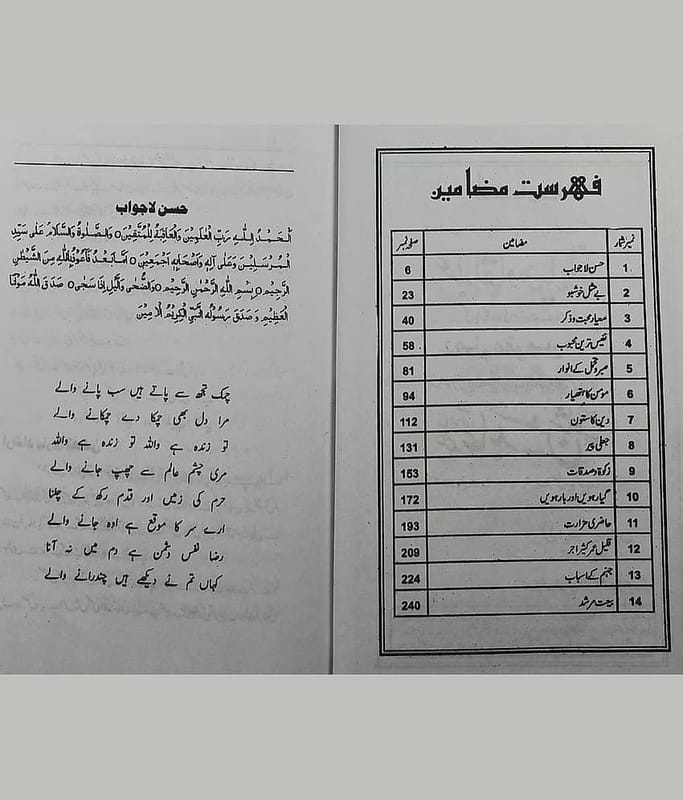 فہرست مضامین
نمبر شمار مضامین صفحہ نمبر
1 حسن لاجواب 6
2 بے مثل خوشبو 23
3 معیار محبت و ذکر 40
4 نفیس ترین محبوب 58
5 صبر و تحمل کے انوار 81
6 مومن کا ہتھیار 94
7 دین کا ستون 112
8 جعلی پیر 131
9 زکوۃ و صدقات 153
10 گیارہویں اور بارہویں 172
11 حاضری مزارت 193
12 قلیل عمر کثیر اجر 209
13 جہنم کے اسباب 224
14 بیعت مرشد 240
حسن لاجواب
اَلْحَمْدُ لِلّٰہِ رَبِّ الْعٰلَمِیْنَ وَالْعَاقِبَۃُ لِلْمُتَّقِیْنَ o وَالصَّلٰوۃُ وَالسَّلَامُ عَلٰی سَیِّدِ
الْمُرْسَلِیْنَ وَعَلٰی آلِہٖ وَاَصْحَابِہٖ اَجْمَعِیْنَ o اَمَّا بَعْدُ فَاَعُوْذُ بِاللّٰہِ مِنَ الشَّیْطٰنِ
الرَّجِیْمِ o بِسْمِ اللّٰہِ الرَّحْمٰنِ الرَّحِیْمِ o وَالضُّحٰی وَالَّیْلِ اِذَا سَجٰی o صَدَقَ اللّٰہُ مَوْلَانَا
الْعَظِیْمِ وَصَدَقَ رَسُوْلُہُ النَّبِیُّ الْکَرِیْمُ الْاَمِیْنَ
چمک تجھ سے پاتے ہیں سب پانے والے
مرا دل بھی چمکا دے چمکانے والے
تو زندہ ہے واللہ تو زندہ ہے واللہ
مری چشم عالم سے چھپ جانے والے
حرم کی زمیں اور قدم رکھ کے چلنا
ارے سر کا موقع ہے اوہ جانے والے
رضا نفس دشمن ہے دم میں نہ آنا
کہاں تم نے دیکھے ہیں چندرانے والے